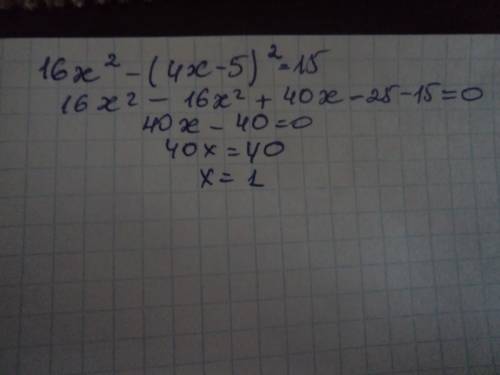 16x² - (4x-5)² = 15
16x² - 16x² + 40x - 25 - 15 = 0
40x - 40 = 0
40x = 40
x = 1